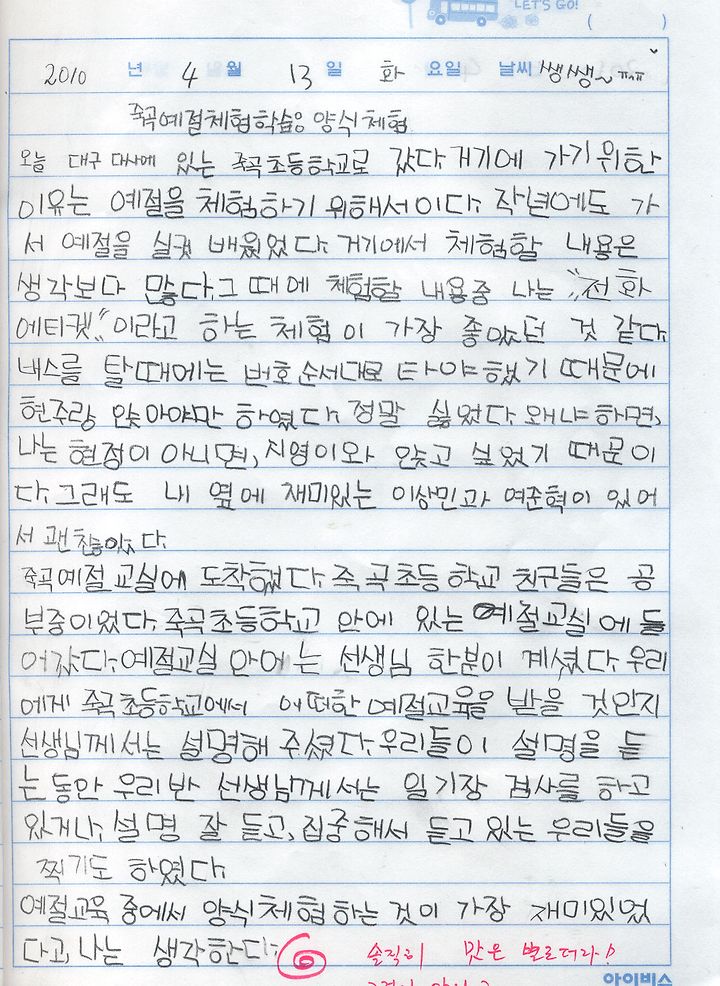 LET'S GO!
( )
2010 년 4 월 13 일 화 요일 날씨 쌩쌩~ㅠㅠ
죽곡예절체험학습: 양식체험
오늘 대구 대사에 있는 죽곡초등학교로 갔다. 거기에 가기 위한
이유는 예절을 체험하기 위해서이다. 작년에도 가
서 예절을 실컷 배웠었다. 거기에서 체험할 내용은
생각보다 많다. 그 때에 체험할 내용중 나는 "전화
에티켓"이라고 하는 체험이 가장 좋았던 것 같다.
버스를 탈때에는 번호순서대로 타야했기 때문에
현주랑 앉아야만 하였다. 정말 싫었다. 왜냐하면,
나는 현정이 아니면, 지영이와 앉고 싶었기 때문이
다. 그래도 내 옆에 재미있는 이상민과 여준혁이 있어
서 괜찮았다.
죽곡예절교실에 도착했다. 죽곡초등학교 친구들은 공
부중이었다. 죽곡초등학교 안에 있는 예절교실에 들
어갔다. 예절교실 안에는 선생님 한분이 계셨다. 우리
에게 죽곡초등학교에서 어떠한 예절교육을 받을 것인지
선생님께서는 설명해 주셨다. 우리들이 설명을 듣
는동안 우리반 선생님께서는 일기장 검사를 하고
있거나, 설명 잘 듣고, 집중해서 듣고 있는 우리들을
찍기도 하였다.
예절교육 중에서 양식체험하는것이 가장 재미있었
다고, 나는 생각한다.
솔직히 맛은 별로더라!
아이비스